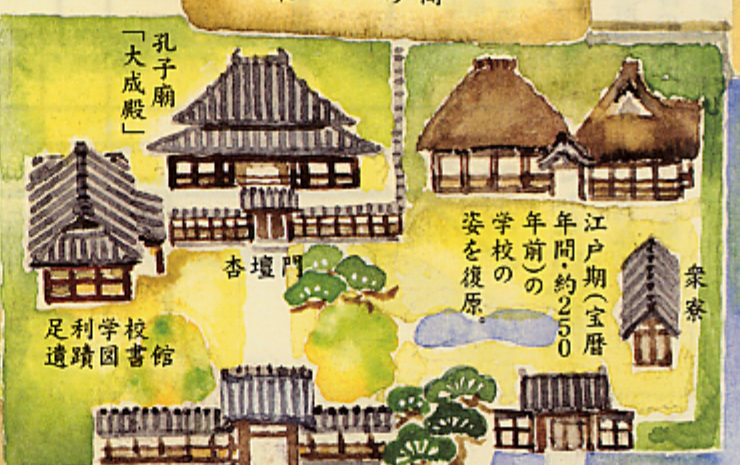 孔子廟
「大成殿」
杏壇門
足利学校
遺蹟図書館
江戸期(宝暦
年間・約250
年前)の
学校の
姿を復原。
衆寮